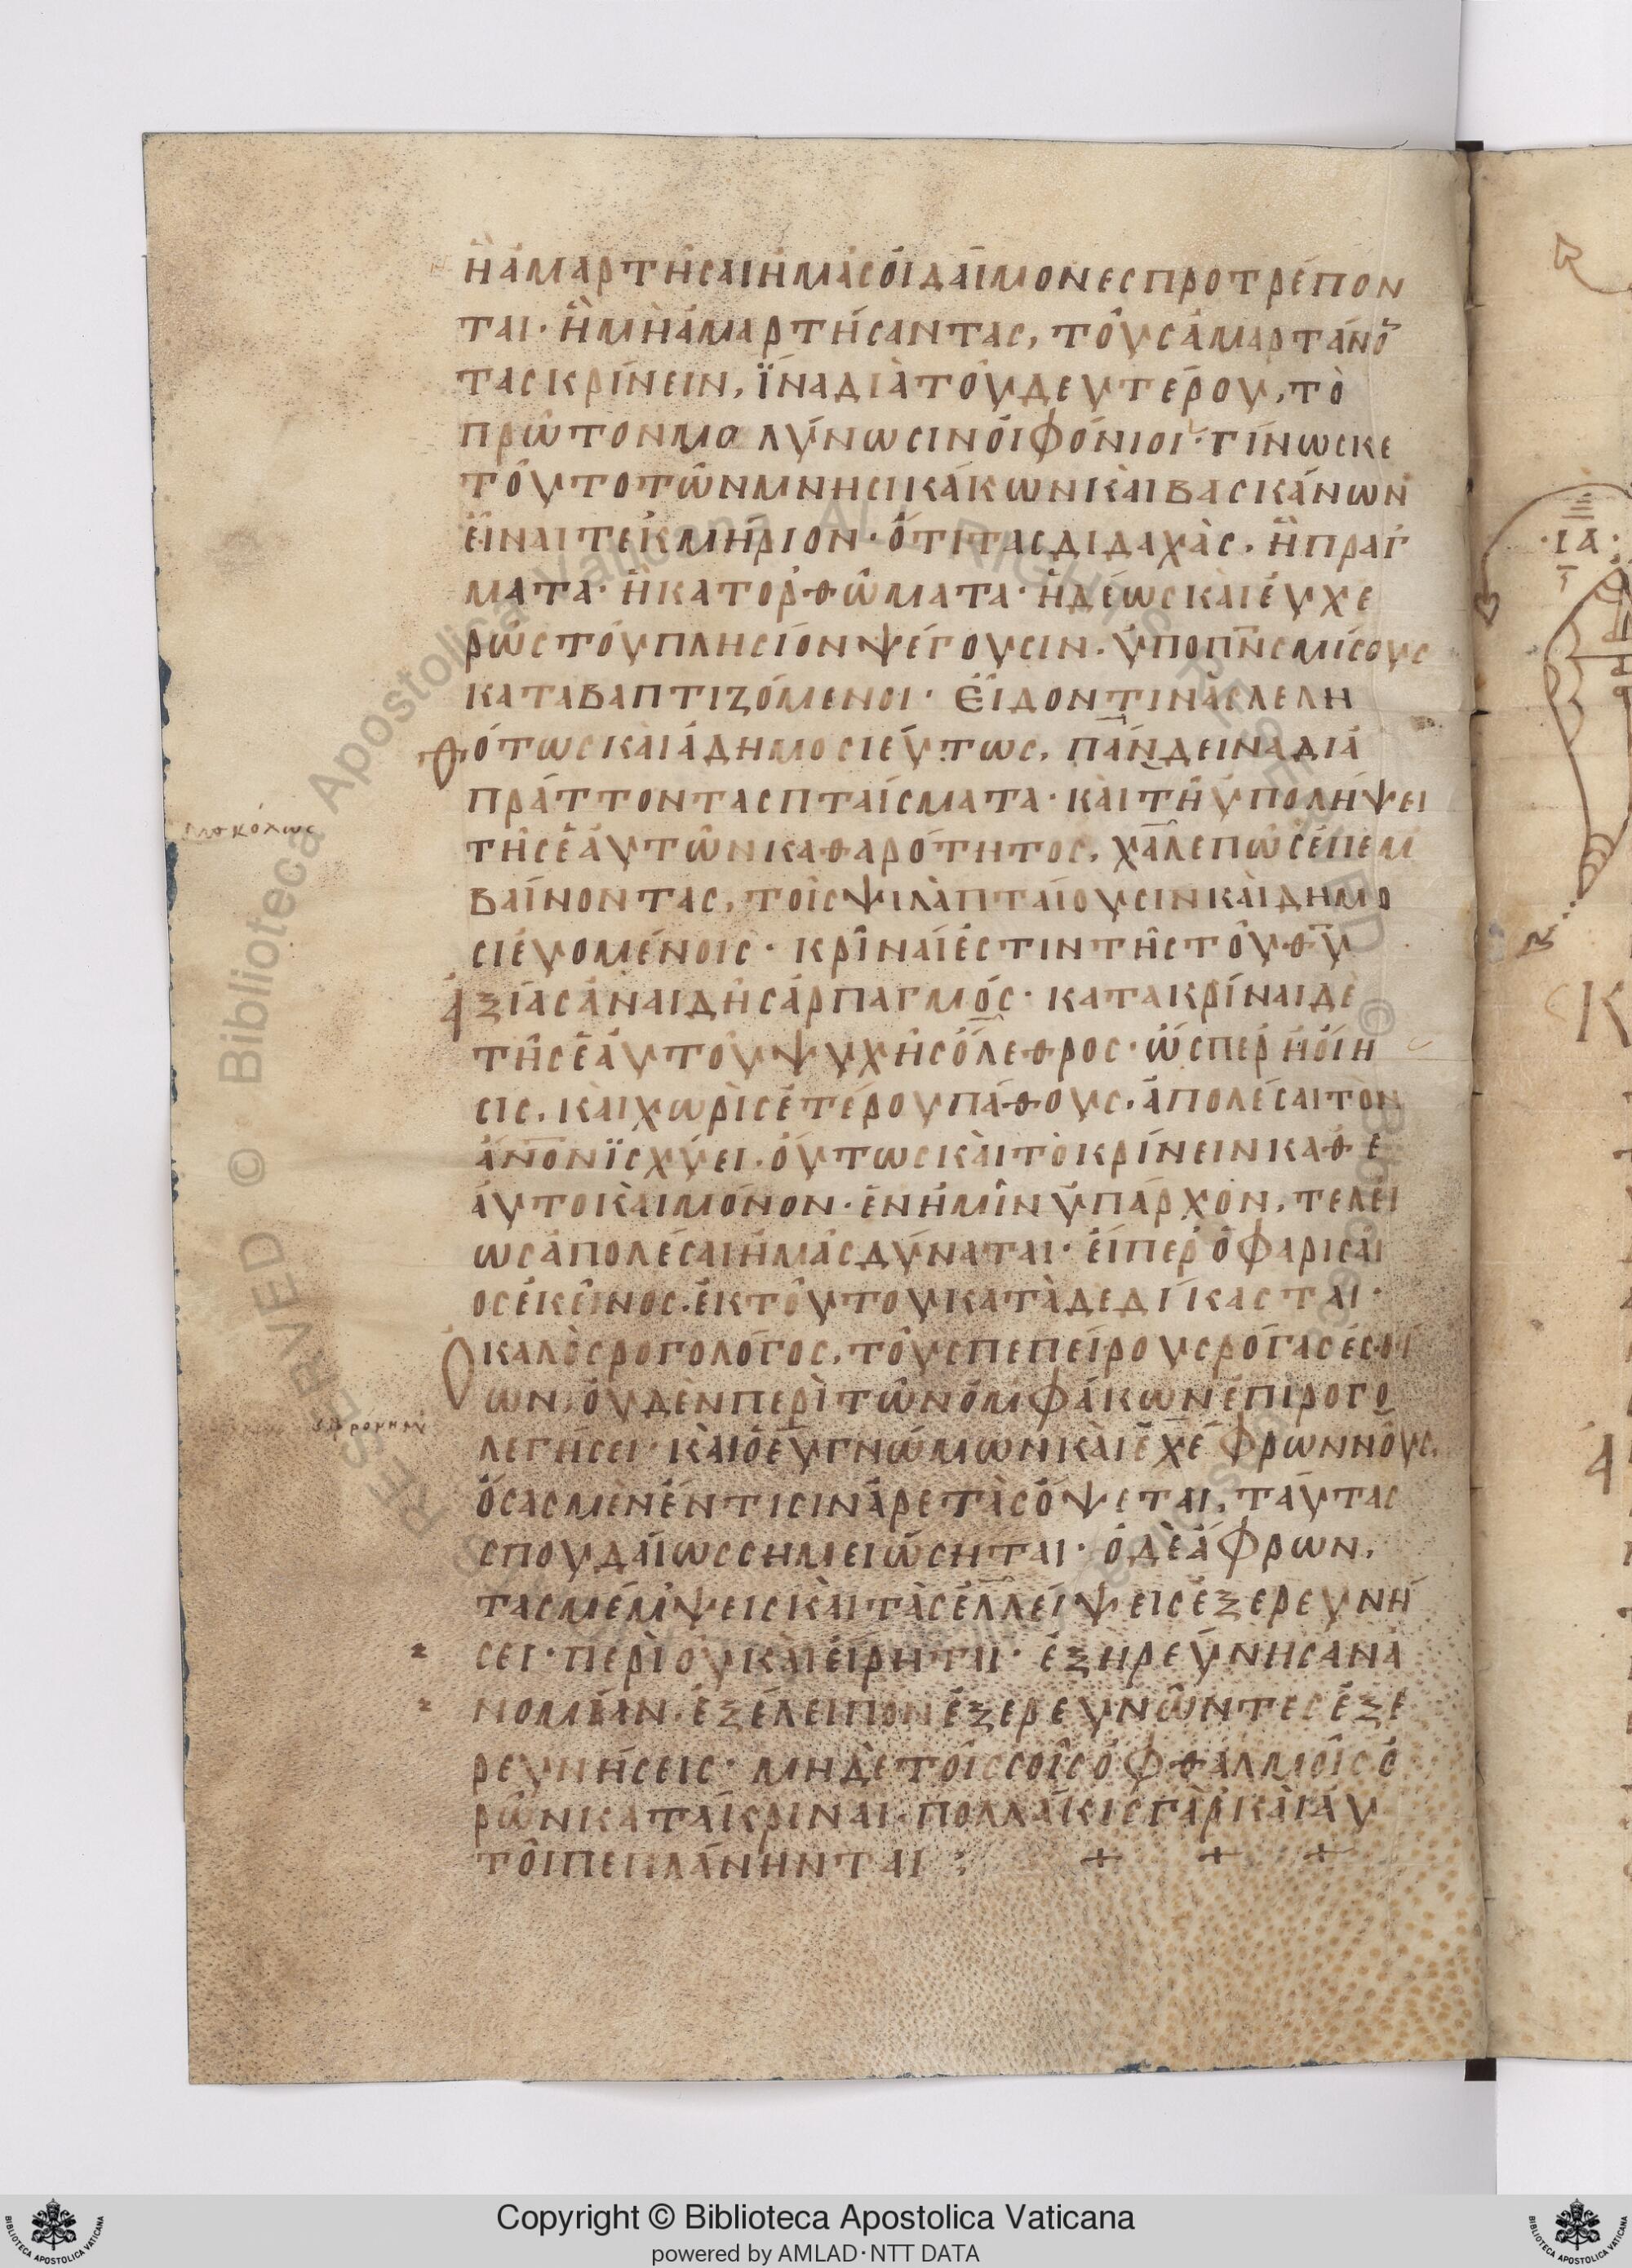 ἢ ἁμαρτῆσαι ἡμᾶς οἱ δαίμονες προτρέπον
ται· ἢ μὴ ἁμαρτήσαντας, τοὺς ἁμαρτάνο̅
τας κρίνειν, ἵνα διὰ τοῦ δευτέρου, τὸ
πρῶτον μολύνωσιν οἱ φόνιοι· γίνωσκε
τοῦτο τῶν μνησικάκων καὶ βασκάνων
εἶναι τεκμήριον· ὅτι τὰς διδαχὰς, ἢ πράγ
ματα· ἢ κατορθώματα· ἡδέως καὶ εὐχε
ρῶς τοῦ πλησίον ψέγουσιν· ὑπὸ π̅ν̅ς μίσους
καταβαπτιζόμενοι· εἶδόν τινας λελη
θότως καὶ ἀδημοσιεύτως, πάνδεινα δια
πράττοντας πταίσματα· καὶ τῇ ὑπολήψει
τῆς ἑαυτῶν καθαρότητος, χαλεπῶς ἐπεμ
βαίνοντας, τοῖς ψιλὰ πταίουσιν καὶ δημο
σιευομένοις· κρῖναί ἐστιν τῆς τοῦ θ̅υ̅
ἀξίας ἀναιδὴς ἁρπαγμός· κατακρῖναι δὲ
τῆς ἑαυτοῦ ψυχῆς ὄλεθρος· ὥσπερ ἡ οἴη
σις, καὶ χωρὶς ἑτέρου πάθους, ἀπολέσαι τὸν
ἄ̅ν̅ο̅ν̅ ἰσχύει· οὕτως καὶ τὸ κρίνειν καθ ε
αυτὸ καὶ μόνον· ἐν ἡμῖν ὑπάρχον, τελεί
ως ἀπολέσαι ἡμᾶς δύναται· εἴπερ ὁ φαρισαῖ
ος ἐκεῖνος· ἐκ τούτου καταδεδίκασται·
Ὁ καλὸς ρογολόγος, τοὺς πεπείρους ρόγας ἐσθί
ων, οὐδὲν περὶ τῶν ὀμφάκων ἐπιρογο
λεγήσει· καὶ ὁ εὐγνώμων καὶ ἐχέφρων νοῦς,
ὅσας μὲν ἔν τισιν ἀρετὰς ὄψεται, ταύτας
σπουδαίως σημειώσηται· ὁ δὲ ἄφρων,
τὰς μέμψεις καὶ τὰς ἐλλείψεις ἐξερευνή
σει· περὶ οὗ καὶ εἴρηται· ἐξηρεύνησαν ἀ
νομίαν· ἐξέλειπον ἐξερευνῶντες ἐξε
ρευνήσεις· μηδὲ τοῖς σοῖς ὀφθαλμοῖς ὁ
ρῶν κατάκριναι· πολλάκις γὰρ καὶ αὐ
τοὶ πεπλάνηνται : + + +